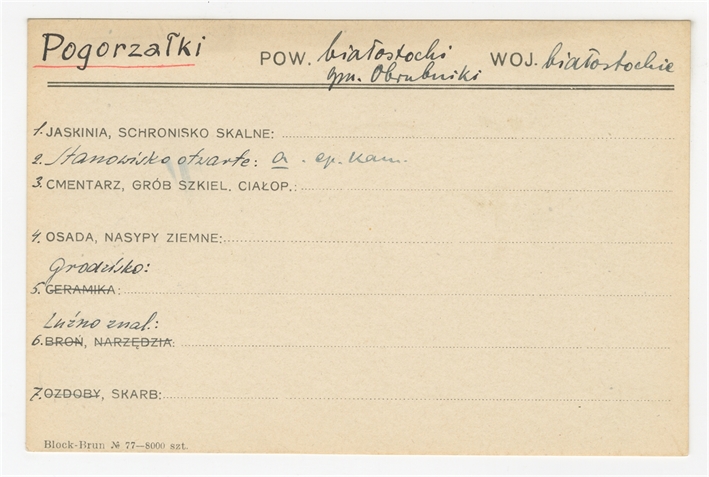 Pogorzałki POW. białostocki WOJ. białostockie
gm. Obrubniki
1. JASKINIA, SCHRONISKO SKALNE:
2. Stanowisko otwarte: a. ep. kam.
3. CMENTARZ, GRÓB SZKIEL. CIAŁOP.:
4. OSADA, NASYPY ZIEMNE:
Grodzisko:
5. CERAMIKA:
Luźno znal.:
6. BROŃ, NARZĘDZIA:
7. OZDOBY, SKARB:
Block-Brun № 77—8000 szt.